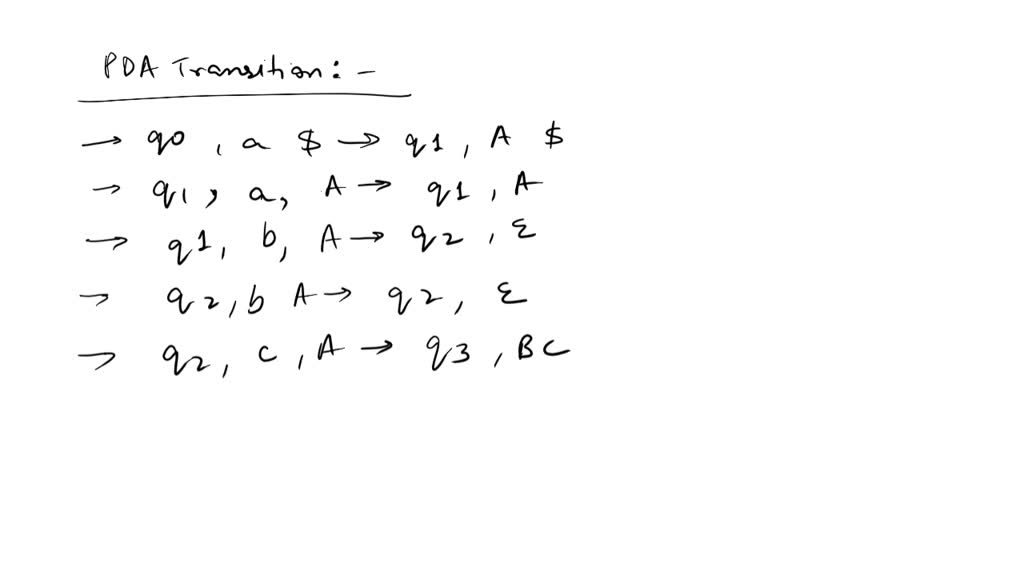 PDA Transition: -
→ q0, a $ → q1, A $
→ q1, a, A → q1, A
→ q1, b, A → q2, ε
→ q2, b A → q2, ε
→ q2, c, A → q3, BC